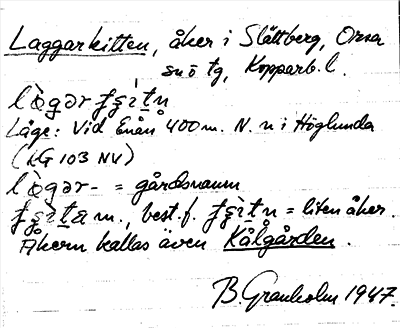 Laggarkitten, åker i Slättberg, Orsa
sn ö tg, Kopparb. l.
Läge: Vid Enån 400 m. N. n i Höglunda
(LG 103 NV)
lògər- = gårdsnamn
m., best. f. = liten åker.
Åkern kallas även Kålgården.
B. Granholm 1947.